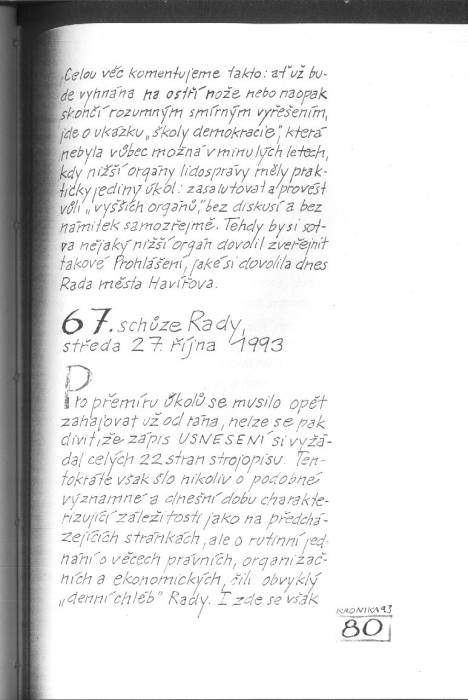 Celou věc komentujeme takto: ať už bu-
de vyhnána na ostří nože nebo naopak
skončí rozumným smírným vyřešením,
jde o ukázku „školy demokracie", která
nebyla vůbec možná v minulých letech,
kdy nižší orgány lidosprávy měly prak-
ticky jediný úkol: zasalutovat a provést
vůli „vyšších orgánů", bez diskusí a bez
námitek samozřejmě. Tehdy by si sot-
va nějaký nižší orgán dovolil zveřejnit
takové Prohlášení, jaké si dovolila dnes
Rada města Havířova.
67. schůze Rady,
středa 27. října 1993
Pro přemíru úkolů se musilo opět
zahajovat už od rána, nelze se pak
divit, že zápis USNESENÍ si vyžá-
dal celých 22 stran strojopisu. Ten-
tokráte však šlo nikoliv o podobné
významné a dnešní dobu charakte-
rizující záležitosti jako na předchá-
zejících stránkách, ale o rutinní jed-
nání o věcech právních, organizač-
ních a ekonomických, čili obvyklý
„denní chléb" Rady. I zde se však
KRONIKA 93
80